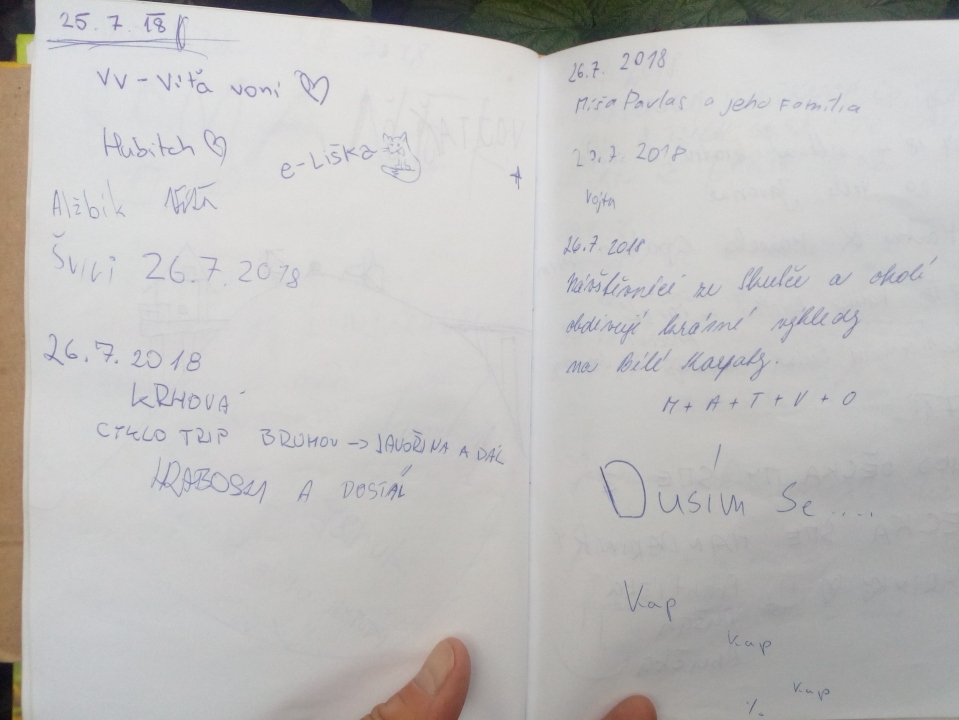 25.7.18
VV - Viťa voní
Hubitch
e-Liška
Alžbik
26.7.2018
26.7.2018
KRHOVÁ
CYKLO TRIP BRUMOV -> JAVOŘINA A DÁL
A DOSTÁL
26.7. 2018
Míša Pavlas a jeho Familia
7 2018
Vojta
26.7.2018
Návštěvníci ze Skutče a okolí
obdivují krásné výhledy
na Bílé Karpaty.
M + A + T + V + O
Dusím se....
Kap
kap
kap